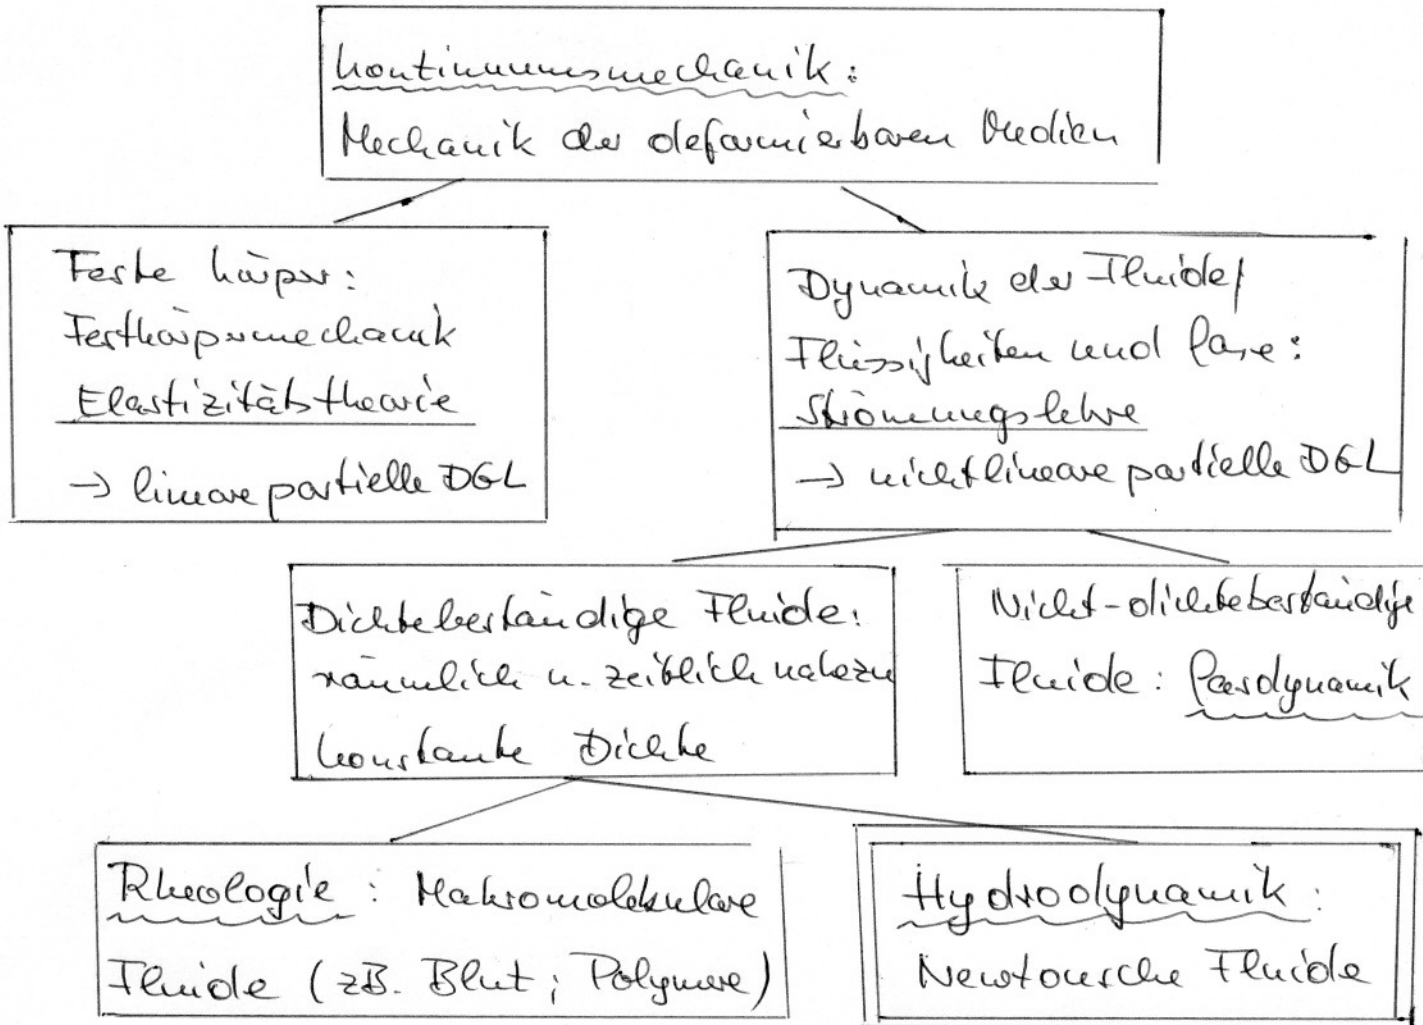 Kontinuumsmechanik:
Mechanik der deformierbaren Medien
Feste Körper:
Festkörpermechanik
Elastizitätstheorie
→ lineare partielle DGL
Dynamik der Fluide/
Flüssigkeiten und Gase:
Strömungslehre
→ nichtlineare partielle DGL
Dichtebeständige Fluide:
räumlich u. zeitlich nahezu
konstante Dichte
Nicht-dichtebeständige
Fluide: Gasdynamik
Rheologie: Makromolekulare
Fluide (zB. Blut; Polymere)
Hydrodynamik:
Newtonsche Fluide